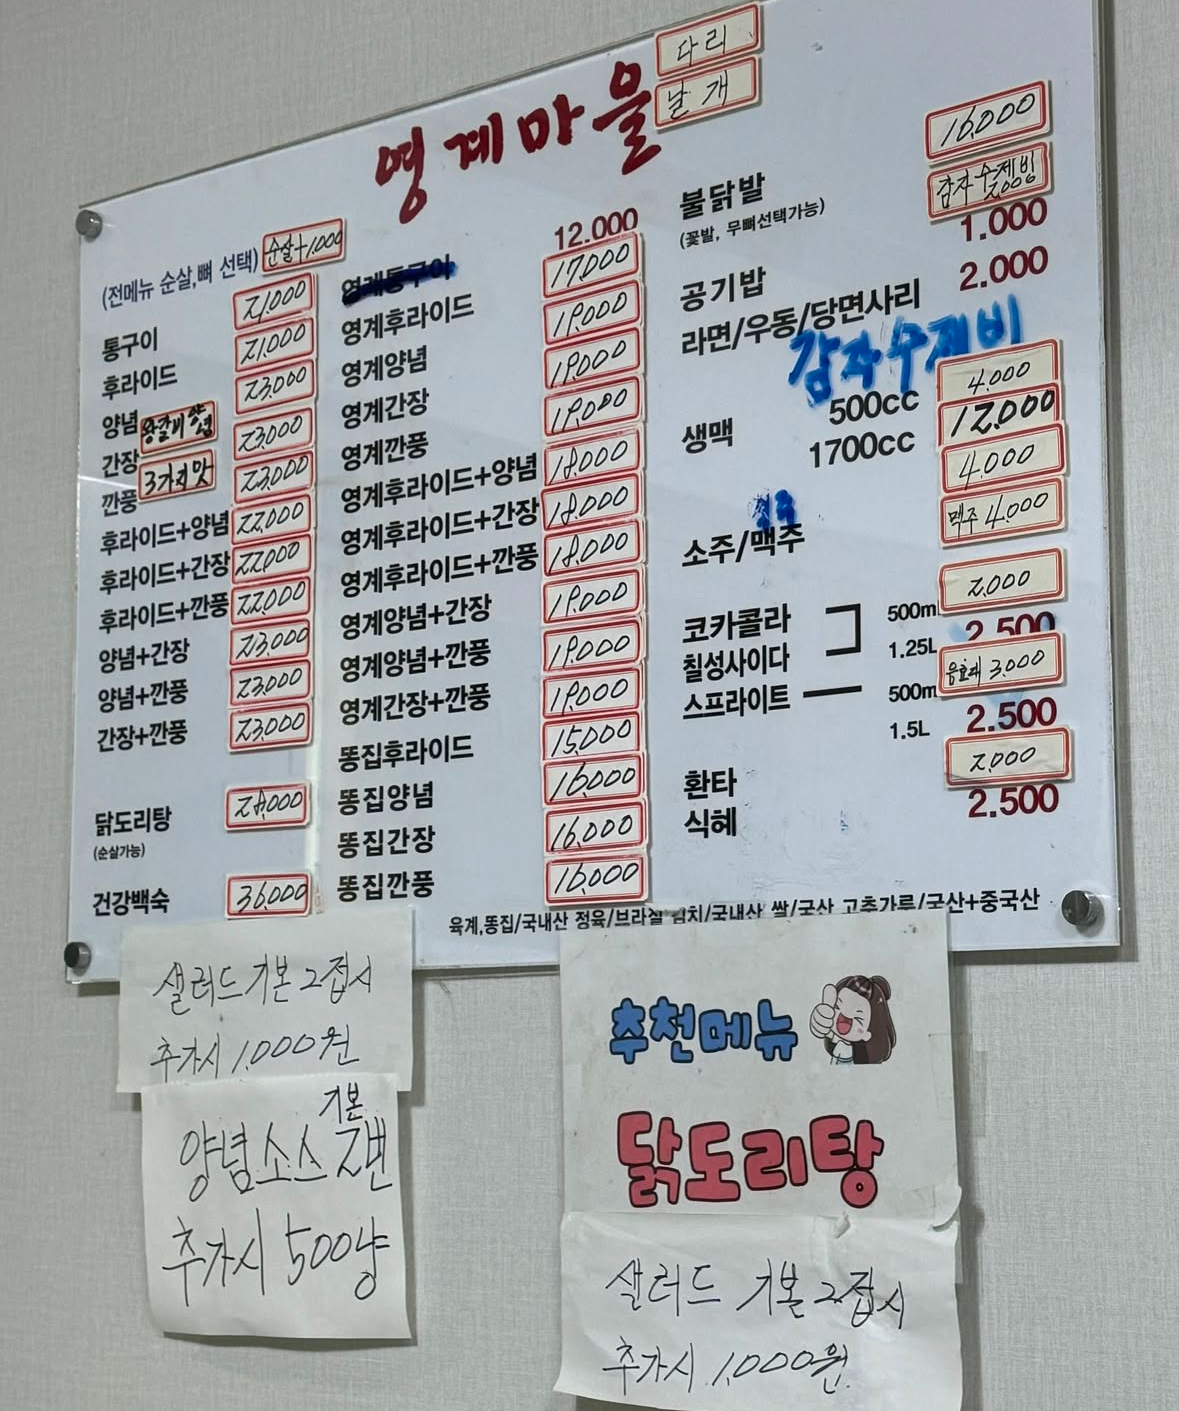 영계마을
다리
날개
(전메뉴 순살,뼈 선택) 순살+1,000
통구이 21,000
후라이드 21,000
양념 23,000
왕갈비양념
간장 23,000
3가지맛
깐풍 23,000
후라이드+양념 22,000
후라이드+간장 22,000
후라이드+깐풍 22,000
양념+간장 23,000
양념+깐풍 23,000
간장+깐풍 23,000
닭도리탕 28,000
(순살가능)
건강백숙 36,000
영계통구이 12.000
영계후라이드 17,000
영계양념 19,000
영계간장 19,000
영계깐풍 19,000
영계후라이드+양념 18,000
영계후라이드+간장 18,000
영계후라이드+깐풍 18,000
영계양념+간장 19,000
영계양념+깐풍 19,000
영계간장+깐풍 19,000
똥집후라이드 15,000
똥집양념 16,000
똥집간장 16,000
똥집깐풍 16,000
불닭발 16,000
(꽃발, 무뼈선택가능)
감자수제빙
공기밥 1.000
라면/우동/당면사리 2.000
감자수제비
생맥 500cc 4.000
1700cc 12,000
소주/맥주 4.000
맥주 4.000
코카콜라 500ml 2,000
칠성사이다 1.25L 2.500
스프라이트 500m 음료캔 3.000
1.5L 2.500
환타 2,000
식혜 2.500
육계,똥집/국내산 정육/브라질 김치/국내산 쌀/국산 고추가루/국산+중국산
샐러드 기본 2접시
추가시 1,000원
기본
양념소스 2번
추가시 500냥
추천메뉴
닭도리탕
샐러드 기본 2접시
추가시 1,000원